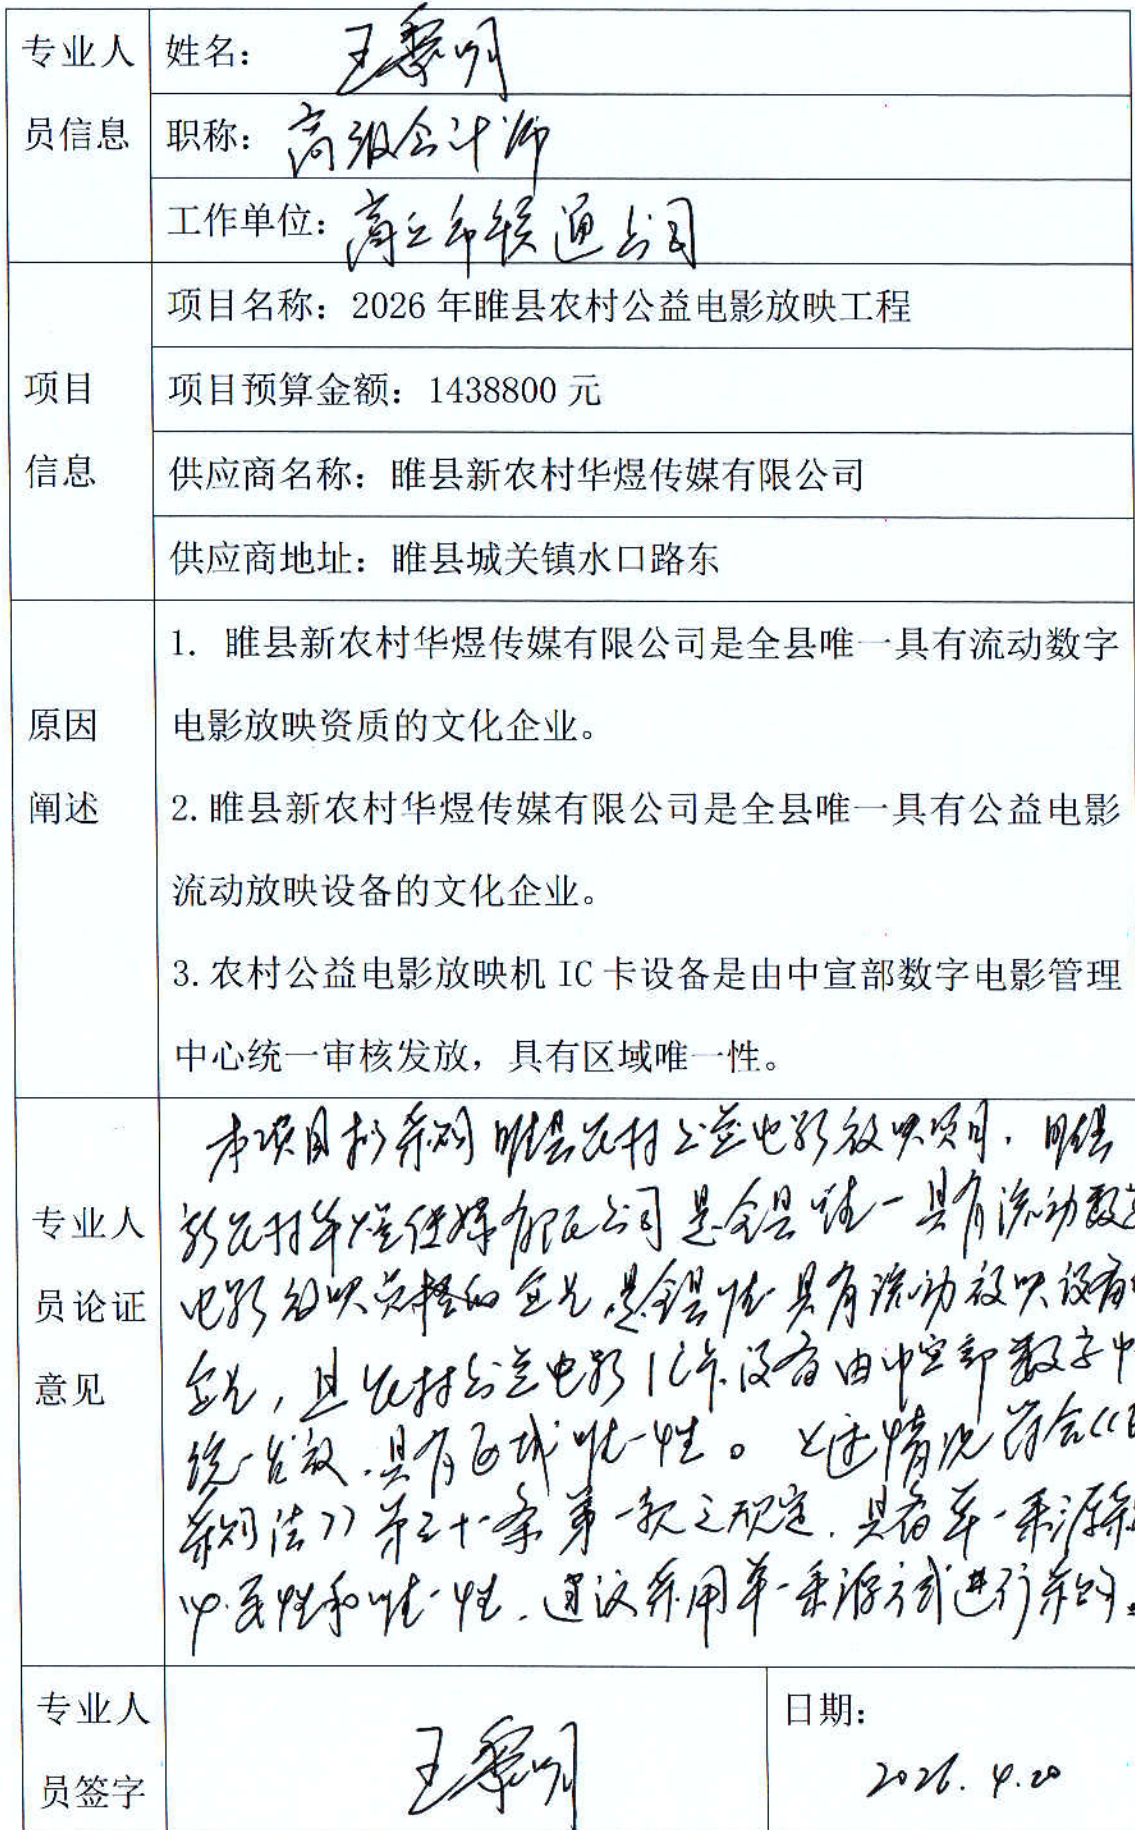 专业人
员信息
姓名：王黎明
职称：高级会计师
工作单位：商丘市联通公司
项目
信息
项目名称：2026年睢县农村公益电影放映工程
项目预算金额：1438800元
供应商名称：睢县新农村华煜传媒有限公司
供应商地址：睢县城关镇水口路东
原因
阐述
1. 睢县新农村华煜传媒有限公司是全县唯一具有流动数字
电影放映资质的文化企业。
2.睢县新农村华煜传媒有限公司是全县唯一具有公益电影
流动放映设备的文化企业。
3.农村公益电影放映机IC卡设备是由中宣部数字电影管理
中心统一审核发放，具有区域唯一性。
专业人
员论证
意见
本项目拟采购睢县农村公益电影放映项目，睢县
新农村华煜传媒有限公司是全县唯一具有流动数字
电影放映资格的企业，是全县唯一具有流动放映设备的
企业，且农村公益电影IC卡设备由中宣部数字中
统一发放，具有区域唯一性。上述情况符合《
采购法》第三十一条第一款之规定，具备单一来源采
必要性和唯一性，建议采用单一来源方式进行采购。
专业人
员签字
王黎明
日期：
2026.4.20